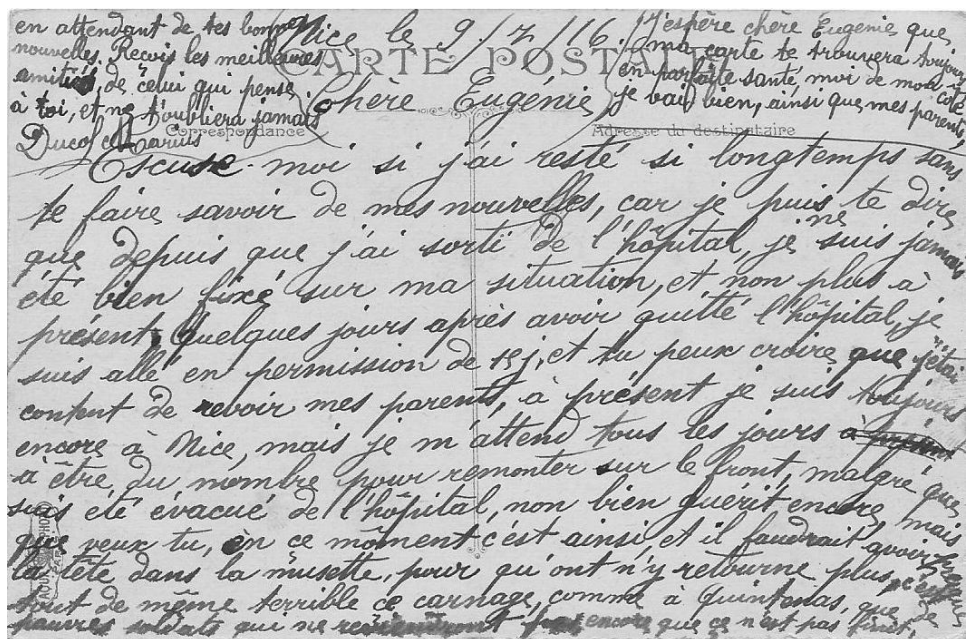 Nice le 9/7/16.
CARTE POSTALE
Chère Eugénie
Correspondance
Adresse du destinataire
Escuse-moi si j'ai resté si longtemps sans
te faire savoir de mes nouvelles, car je puis te dire
que depuis que j'ai sorti de l'hôpital, je ne suis jamais
été bien fixé sur ma situation, et non plus à
présent, Quelques jours après avoir quitté l'hôpital, je
suis allé en permission de 15 j, et tu peux croire que j'étai
content de revoir mes parents, à présent je suis toujours
encore à Nice, mais je m'attend tous les jours
à être du nombre pour remonter sur le front, malgré que
suis été évacué de l'hôpital, non bien guérit encore, mais
que veux tu, en ce môment c'est ainsi et il faudrait avoir presque
la tête dans la musette, pour qu'ont n'y retourne plus, c'est
tout de même terrible ce carnage, comme à Quintenas, que de
pauvres soldats qui ne encore que ce n'est pas
J'espère chère Eugénie que
ma carte te trouvera toujours
en parfaite santé, moi de mon côté
je vais bien, ainsi que mes parents,
en attendant de tes bonnes
nouvelles. Reçois les meilleures
amitiés, de celui qui pense
à toi, et ne t'oubliera jamais
Marius